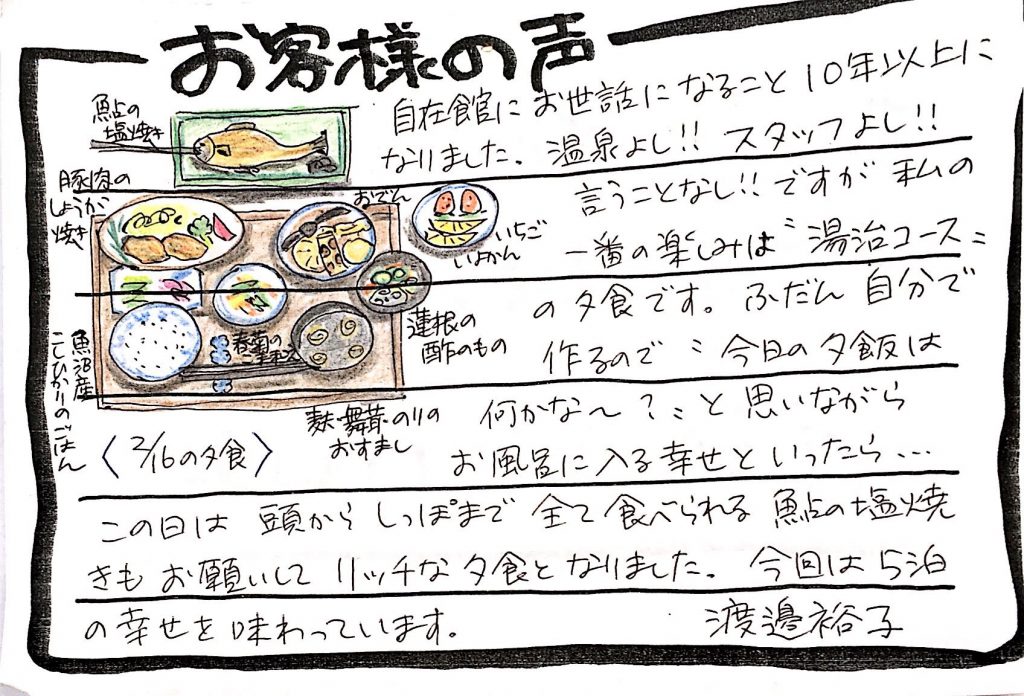 お客様の声
鮎の
塩焼き
豚肉の
しょうが
焼き
おでん
いちご
いよかん
蓮根の
酢のもの
春菊の
ごま和え
魚沼産
こしひかりのごはん
麸・舞茸・のりの
おすまし
〈2/16の夕食〉
自在館にお世話になること10年以上に
なりました。温泉よし!! スタッフよし!!
言うことなし!! ですが 私の
一番の楽しみは〝湯治コース〟
の夕食です。ふだん 自分で
作るので〝今日の夕飯は
何かな〜?〟と思いながら
お風呂に入る幸せといったら…
この日は 頭からしっぽまで 全て食べられる 鮎の塩焼
きもお願いして リッチな夕食となりました。今回は5泊
の幸せを味わっています。
渡邉裕子